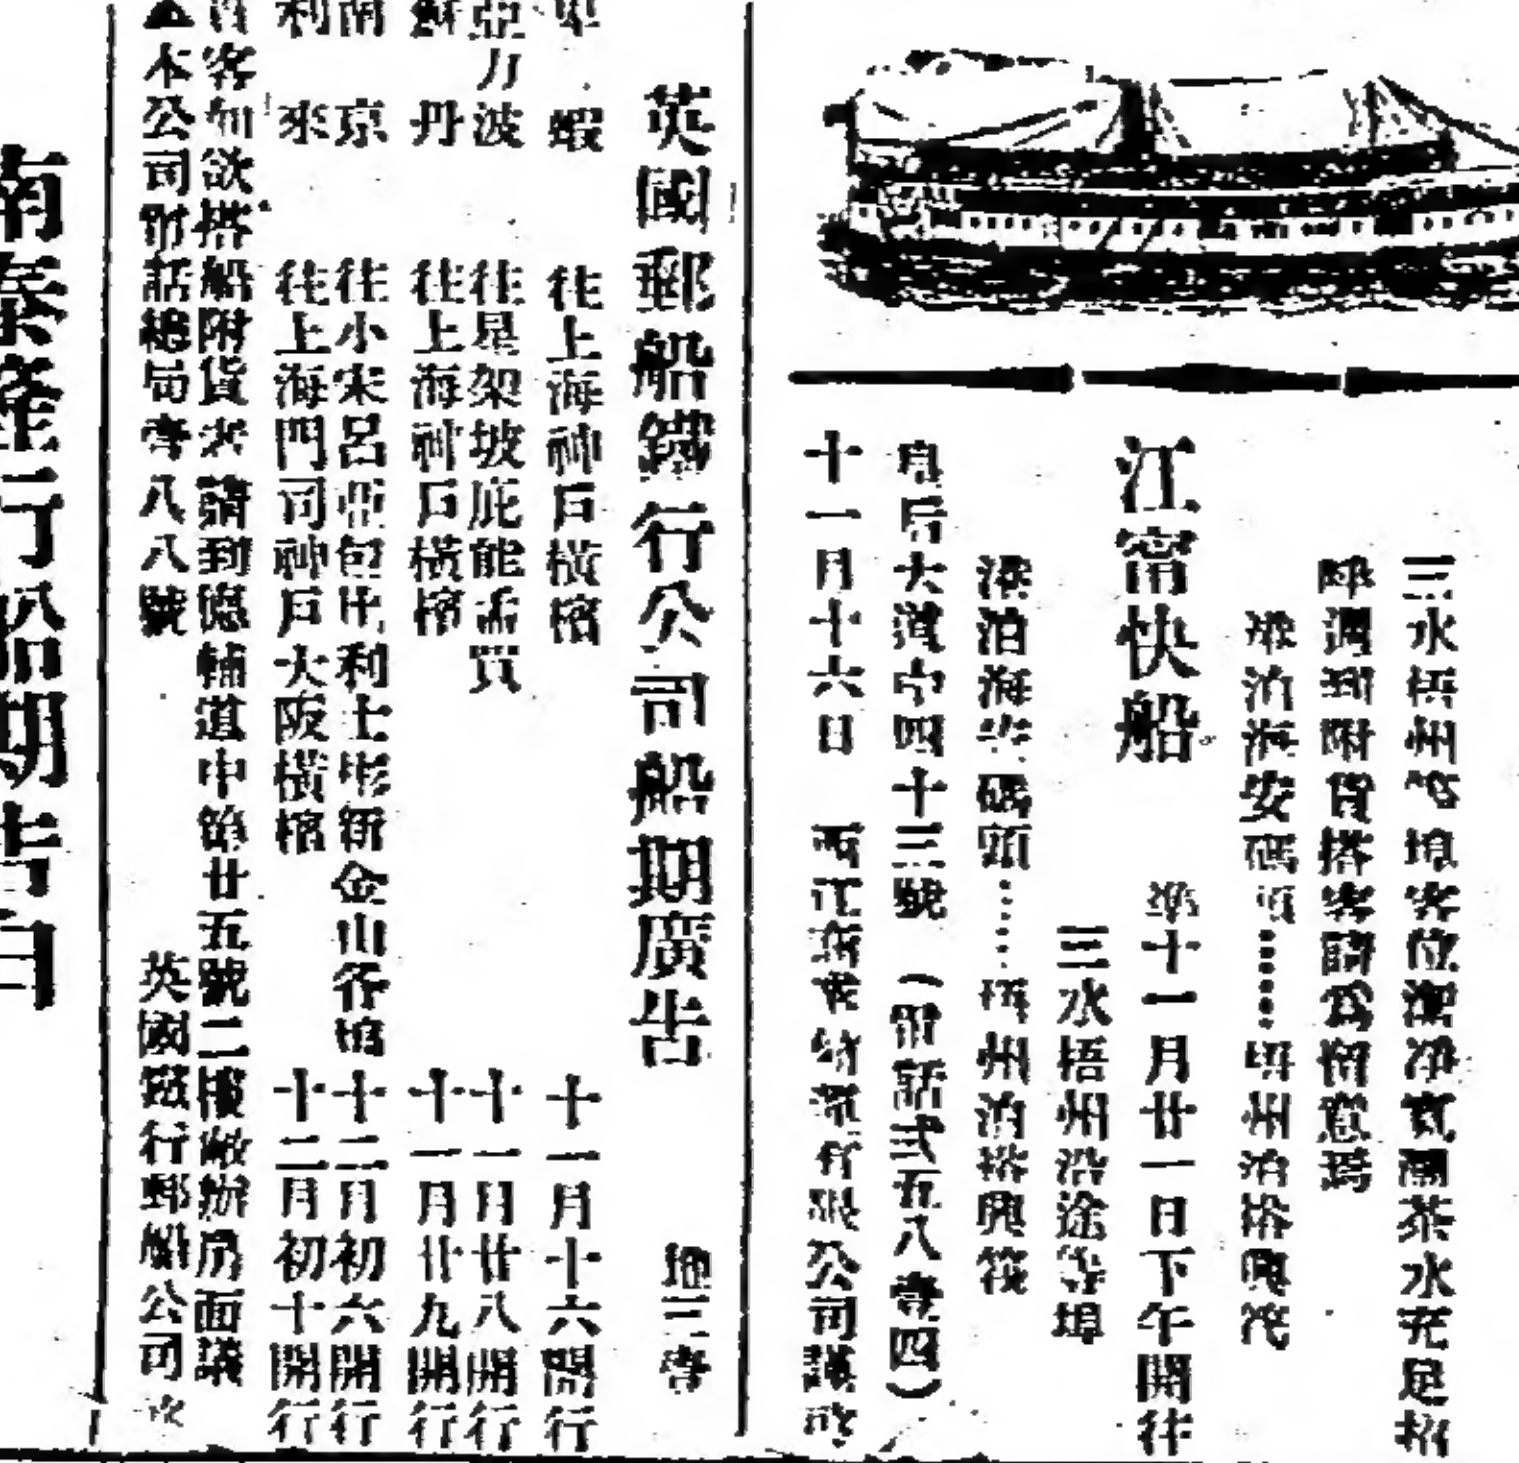 三水梧州等埠客位潔净寬濶茶水充足招
呼週到附貨搭客請爲留意焉
港泊海安碼頭……梧州泊裕興筏
江甯快船
準十一月廿一日下午開往
三水梧州沿途等埠
港泊海安碼頭……梧州泊裕興筏
皇后大道中四十三號 (電話弍五八壹四)
十一月十六日 兩江 有限公司謹啟
英國郵船鐵行公司船期廣告
地三壹
卑蝦 往上海神戶橫檳 十一月十六開行
亞力波 往星架坡庇能孟買 十一月廿八開行
蘇丹 往上海神戶橫檳 十一月廿九開行
南京 往小宋呂亞包比利士彬新金山各埠 十二月初六開行
利來 往上海門司神戶大阪橫檳 十二月初十開行
貴客如欲搭船附貨者請到德輔道中第廿五號二樓敝辦房面議
▲本公司電話總局壹八八號 英國鐵行郵船公司
南泰隆行船期告白